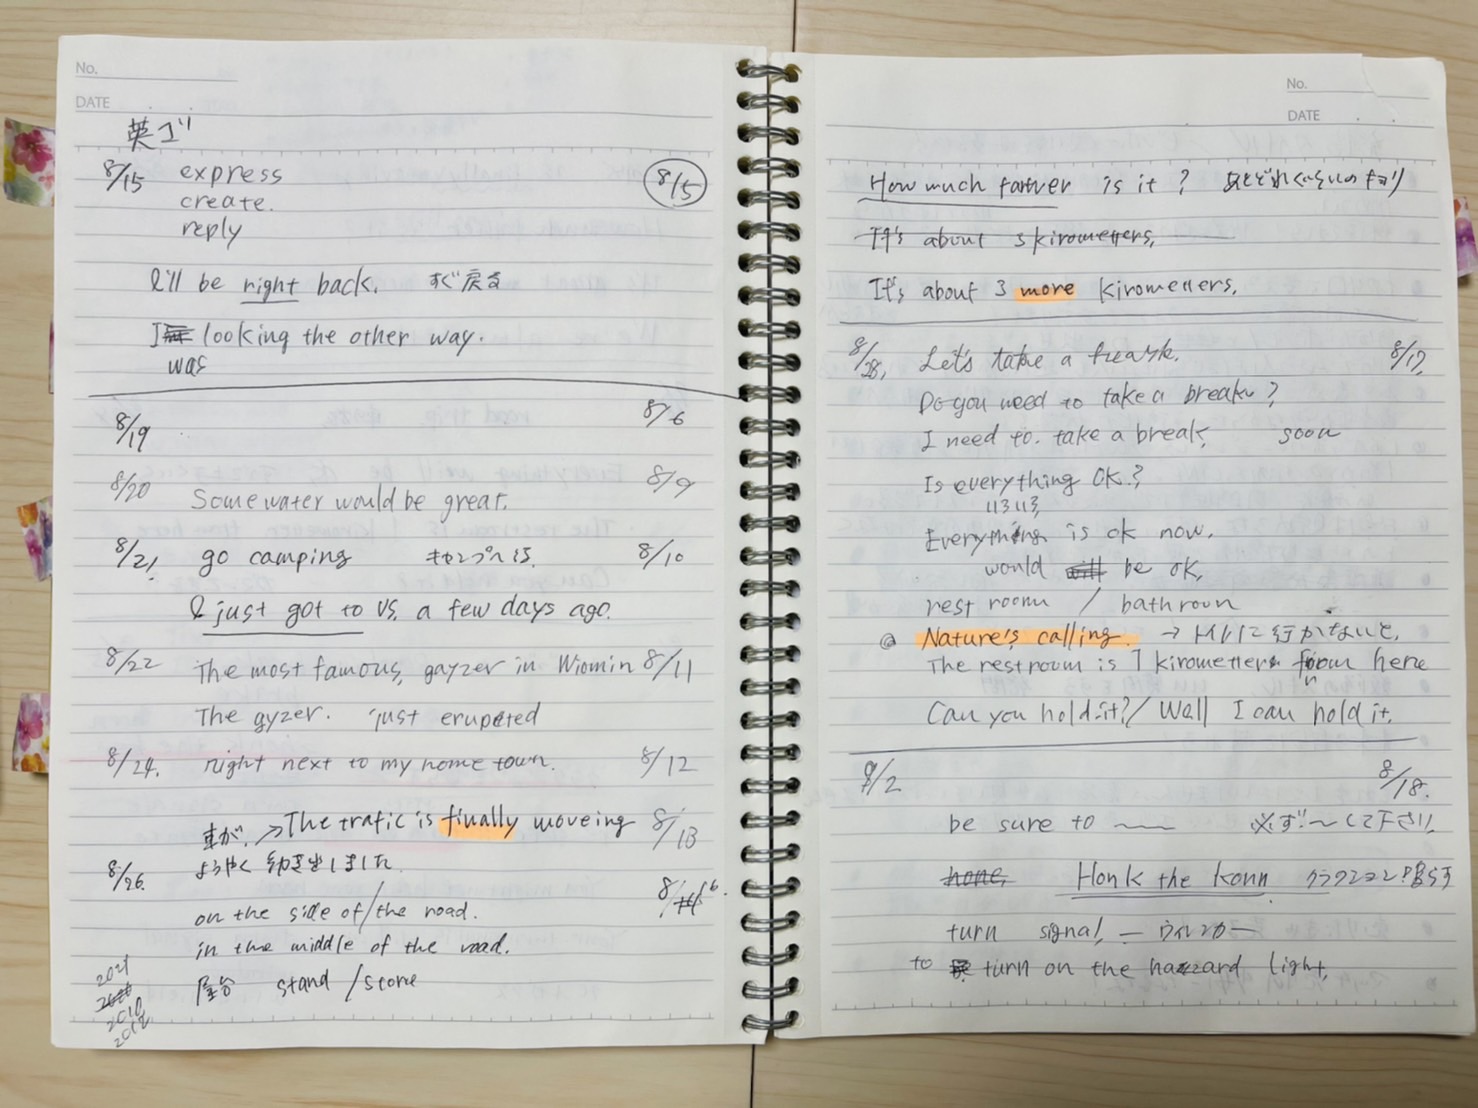 No.
DATE
英ゴ
8/15 express 8/5
create.
reply
I'll be right back. すぐ戻る
I looking the other way.
was
8/19 8/6
8/20 Some water would be great. 8/9
8/21, go camping キャンプへ行る. 8/10
I just got to US, a few days ago.
8/22 The most famous, gayzer in Wiomin 8/11
The gyzer. just erupeted
8/24. right next to my home town. 8/12
車が, → The trafic is finally moveing 8/13
ようやく動き出しました.
8/26. on the side of/the road. 8/16.
in the middle of the road.
屋台 stand /store
2021
2010
2012
No.
DATE
How much farther is it? あとどれくらいのキョリ
It's about 3 kirometters,
It's about 3 more kirometters.
8/28, Let's take a freask. 8/17,
Do you need to take a break?
I need to. take a break, soon
Is everything OK?
いろいろ
Everything is ok now.
would will be ok,
rest room / bathroom
Nature's calling. → トイレに行かないと,
The restroom is 1 kirometters from here
Can you hold it?/ Well I can hold it.
9/2 8/18.
be sure to 〜〜 必ず〜して下さい,
hone, Honk the konn クラクション鳴らす
turn signal, ー ウインカー
to turn on the hazzard light,